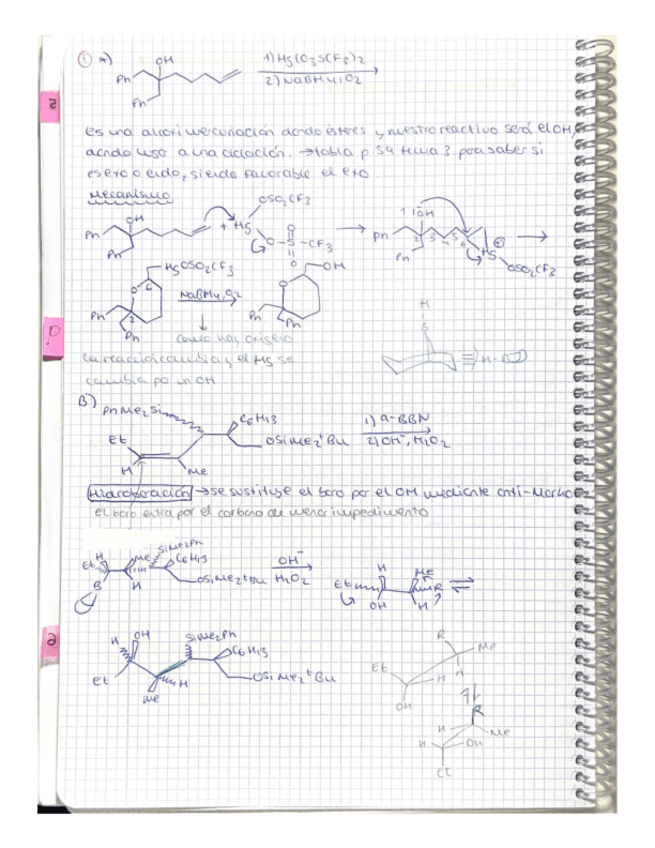 ① a)
OH
Ph
Ph
1) Hg(O3SCF3)2
2) NaBH4, O2
es una alcoximercuriación dando ésteres y nuestro reactivo será el OH,
dando lugar a una ciclación. → tabla p 59 tema 3 para saber si
es exo o endo, siendo favorable el exo
Mecanismo
OSO2CF3
OH
Ph
Ph
+ Hg
O-S-CF3
O
O
OH
Ph
Ph
2 3 4 5 6
Hg
OSO2CF3
HgOSO2CF3
O 6
Ph
2
Ph
NaBH4, O2
OH
O
Ph
Ph
como hay oxígeno
la reacción cambia y el Hg se
cambia por un OH
H
B
≡ H-B
B)
PhMe2Si
C6H13
Et
OSiMe2tBu
H
Me
1) 9-BBN
2) OH-, H2O2
Hidroboración → se sustituye el boro por el OH mediante anti-Marko
el boro entra por el carbono de menor impedimento
SiMe2Ph
H
Me
C6H13
Et
B
H
OSiMe2tBu
OH-
H2O2
H
Me
Et
R
OH
H
H
OH
SiMe2Ph
C6H13
Et
H
OSiMe2tBu
Me
R
Me
Et
H
H
OH
R
H
Me
H
OH
Et